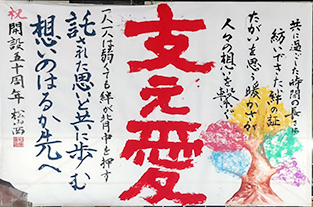 共に過ごした時間の長さは
紡いできた絆の証
たがいを思う暖かさが
人々の想いを繋ぐ
支え愛
一人一人は弱くても絆が背中を押す
託された思いと共に歩む
想いのはるか先へ
祝 開設五十周年 松山西